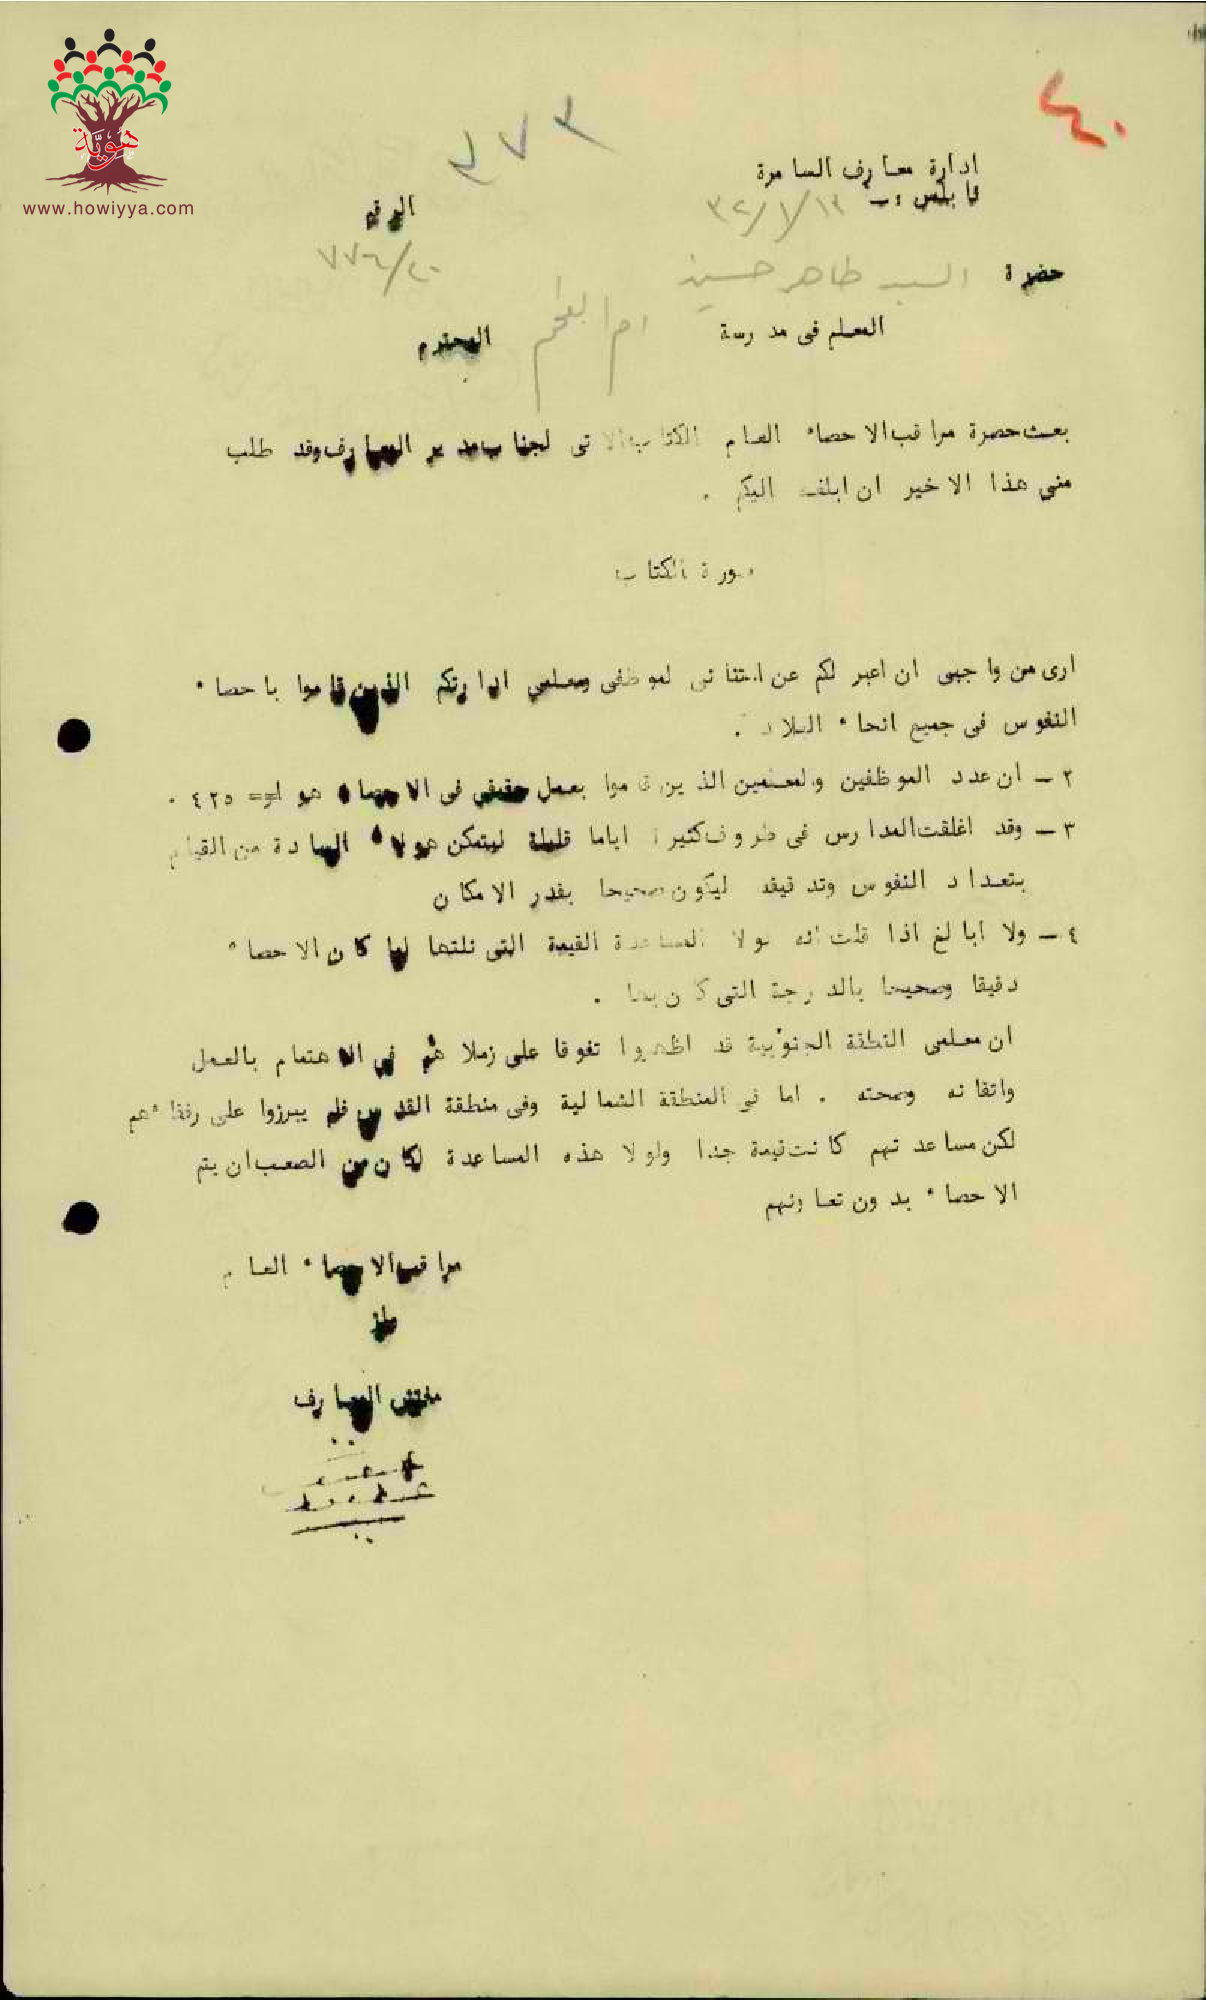 هوية
www.howiyya.com
٤٠
٣٧٣
ادارة معارف السامرة
نابلس في ١٣/١/٣٢
الرقم
٢٠/٧٧٦
حضرة السيد طاهر حسين
المعلم فى مدرسة ام الفحم المحترم
بعث حضرة مراقب الاحصاء العام الكتاب الاتى لجناب مدير المعارف وقد طلب
منى هذا الاخير ان ابلغه اليكم .
صورة الكتاب
ارى من واجبى ان اعبر لكم عن امتنانى لموظفى ومعلمى ادارتكم الذين قاموا باحصاء
النفوس فى جميع انحاء البلاد .
٢ – ان عدد الموظفين والمعلمين الذين قاموا بعمل حقيقى فى الاحصاء هو ٤٢٥ .
٣ – وقد اغلقت المدارس فى ظروف كثيرة اياما قليلة ليتمكن هولاء السادة من القيام
بتعداد النفوس وتدقيقه ليكون صحيحا بقدر الامكان
٤ – ولا ابالغ اذا قلت انه لولا المساعدة القيمة التى نلتها لما كان الاحصاء
دقيقا وصحيحا بالدرجة التى كان بها .
ان معلمى النطقة الجنوبية قد اظهروا تفوقا على زملائهم فى الاهتمام بالعمل
واتقانه وصحته . اما فى المنطقة الشمالية وفى منطقة القدس فلم يبرزوا على رفقائهم
لكن مساعدتهم كانت قيمة جدا ولولا هذه المساعدة لكان من الصعب ان يتم
الاحصاء بدون تعاونهم
مراقب الاحصاء العام
ملز
مفتش المعارف